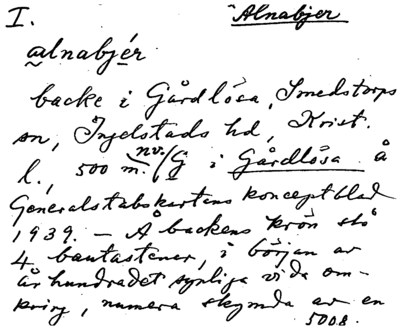 I. Alnabjer
alnabjér
backe i Gårdlösa, Smedstorps
sn, Ingelstads hd, Krist.
l., 500 m. nv./G i Gårdlösa å
Generalstabskartans konceptblad
1939. – Å backens krön stå
4 bautastenar, i början av
århundradet synliga vida om-
kring, numera skymda av en
5008.